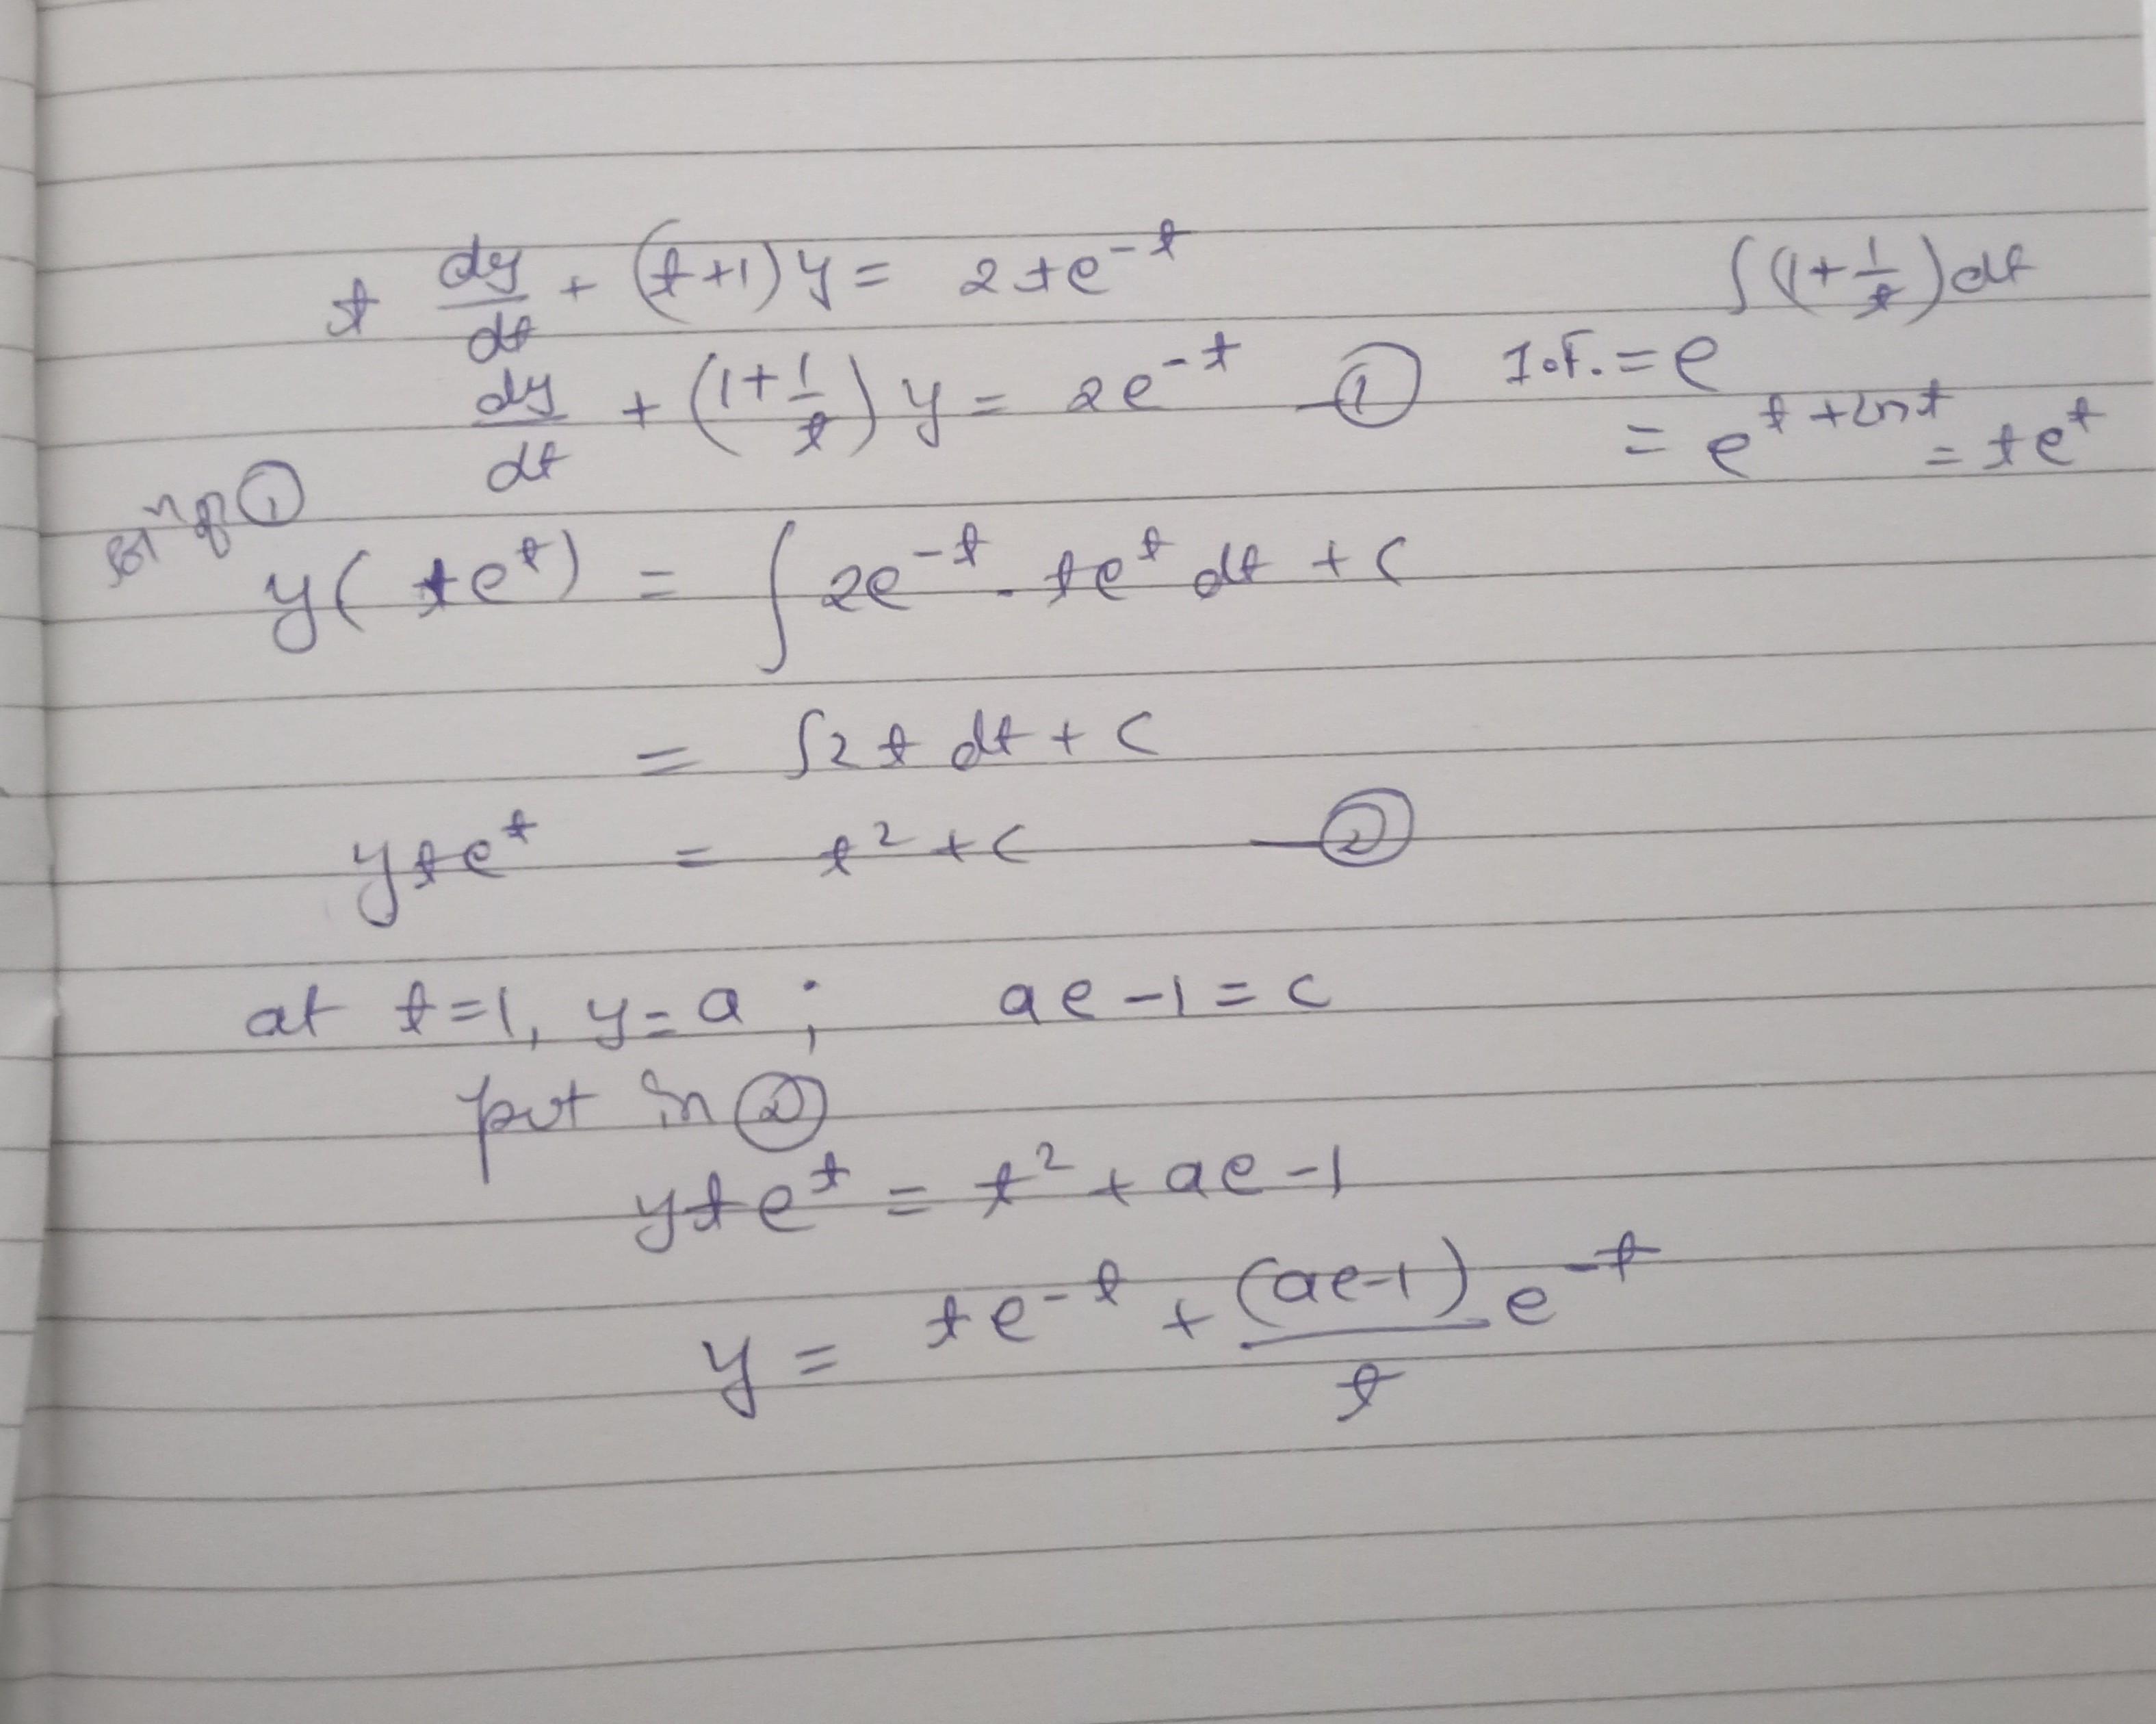 t dy/dt + (t+1)y = 2te^-t
dy/dt + (1+1/t)y = 2e^-t —①
I.F. = e^∫(1+1/t)dt
= e^t+lnt = te^t
sol^n of ①
y(te^t) = ∫2e^-t . te^t dt + c
= ∫2t dt + c
yte^t = t² + c —②
at t=1, y=a ; ae-1=c
put in ②
yte^t = t² + ae-1
y = te^-t + (ae-1)/t e^-t